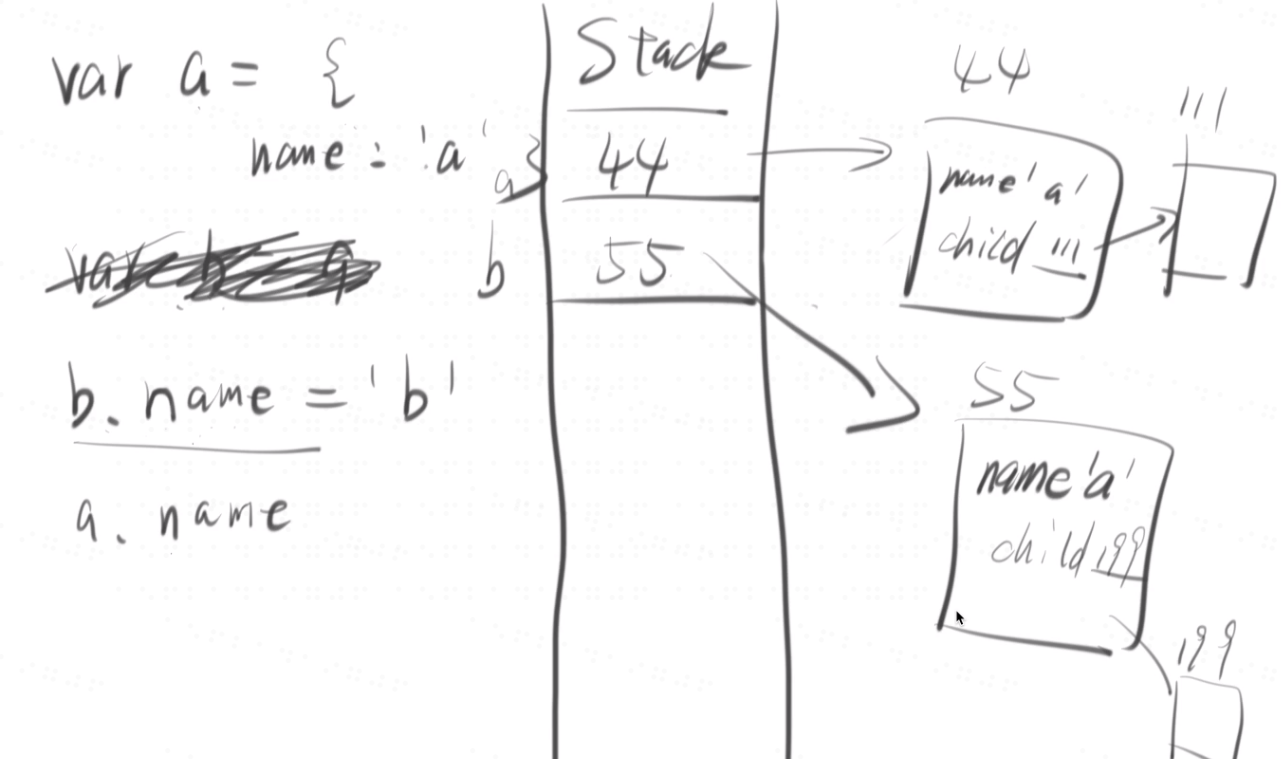 var a = {
name : 'a' }
var b = a
b. name = 'b'
a. name
Stack
a 44
b 55
44
name 'a'
child 111
111
55
name 'a'
child 199
199